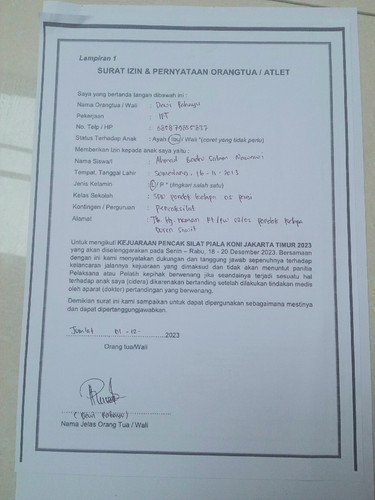 Lampiran 1
SURAT IZIN & PERNYATAAN ORANGTUA / ATLET
Saya yang bertanda tangan dibawah ini :
Nama Orangtua / Wali : Dewi Rahayu
Pekerjaan :
No. Telp / HP :
Status Terhadap Anak : Ayah / Ibu / Wali *(coret yang tidak perlu)
Memberikan izin kepada anak saya yaitu ;
Nama Siswa/i : Ahmad
Tempat, Tanggal Lahir : 16-11-2013
Jenis Kelamin : L / P * (lingkari salah satu)
Kelas Sekolah : pondok kelapa 05 pagi
Kontingen / Perguruan :
Alamat : pondok kelapa
Untuk mengikuti KEJUARAAN PENCAK SILAT PIALA KONI JAKARTA TIMUR 2023
yang akan diselenggarakan pada Senin – Rabu, 18 - 20 Desember 2023. Bersamaan
dengan ini kami menyatakan dukungan dan tanggung jawab sepenuhnya terhadap
kelancaran jalannya kejuaraan yang dimaksud dan tidak akan menuntut panitia
Pelaksana atau Pelatih kepihak berwenang jika seandainya terjadi sesuatu hal
terhadap anak saya (cidera) dikarenakan bertanding setelah dilakukan tindakan medis
oleh aparat (dokter) pertandingan yang berwenang.
Demikian surat ini kami sampaikan untuk dapat dipergunakan sebagaimana mestinya
dan dapat dipertanggungjawabkan.
Jumat 01 - 12 - 2023
Orang tua/Wali
( Dewi Rahayu )
Nama Jelas Orang Tua / Wali